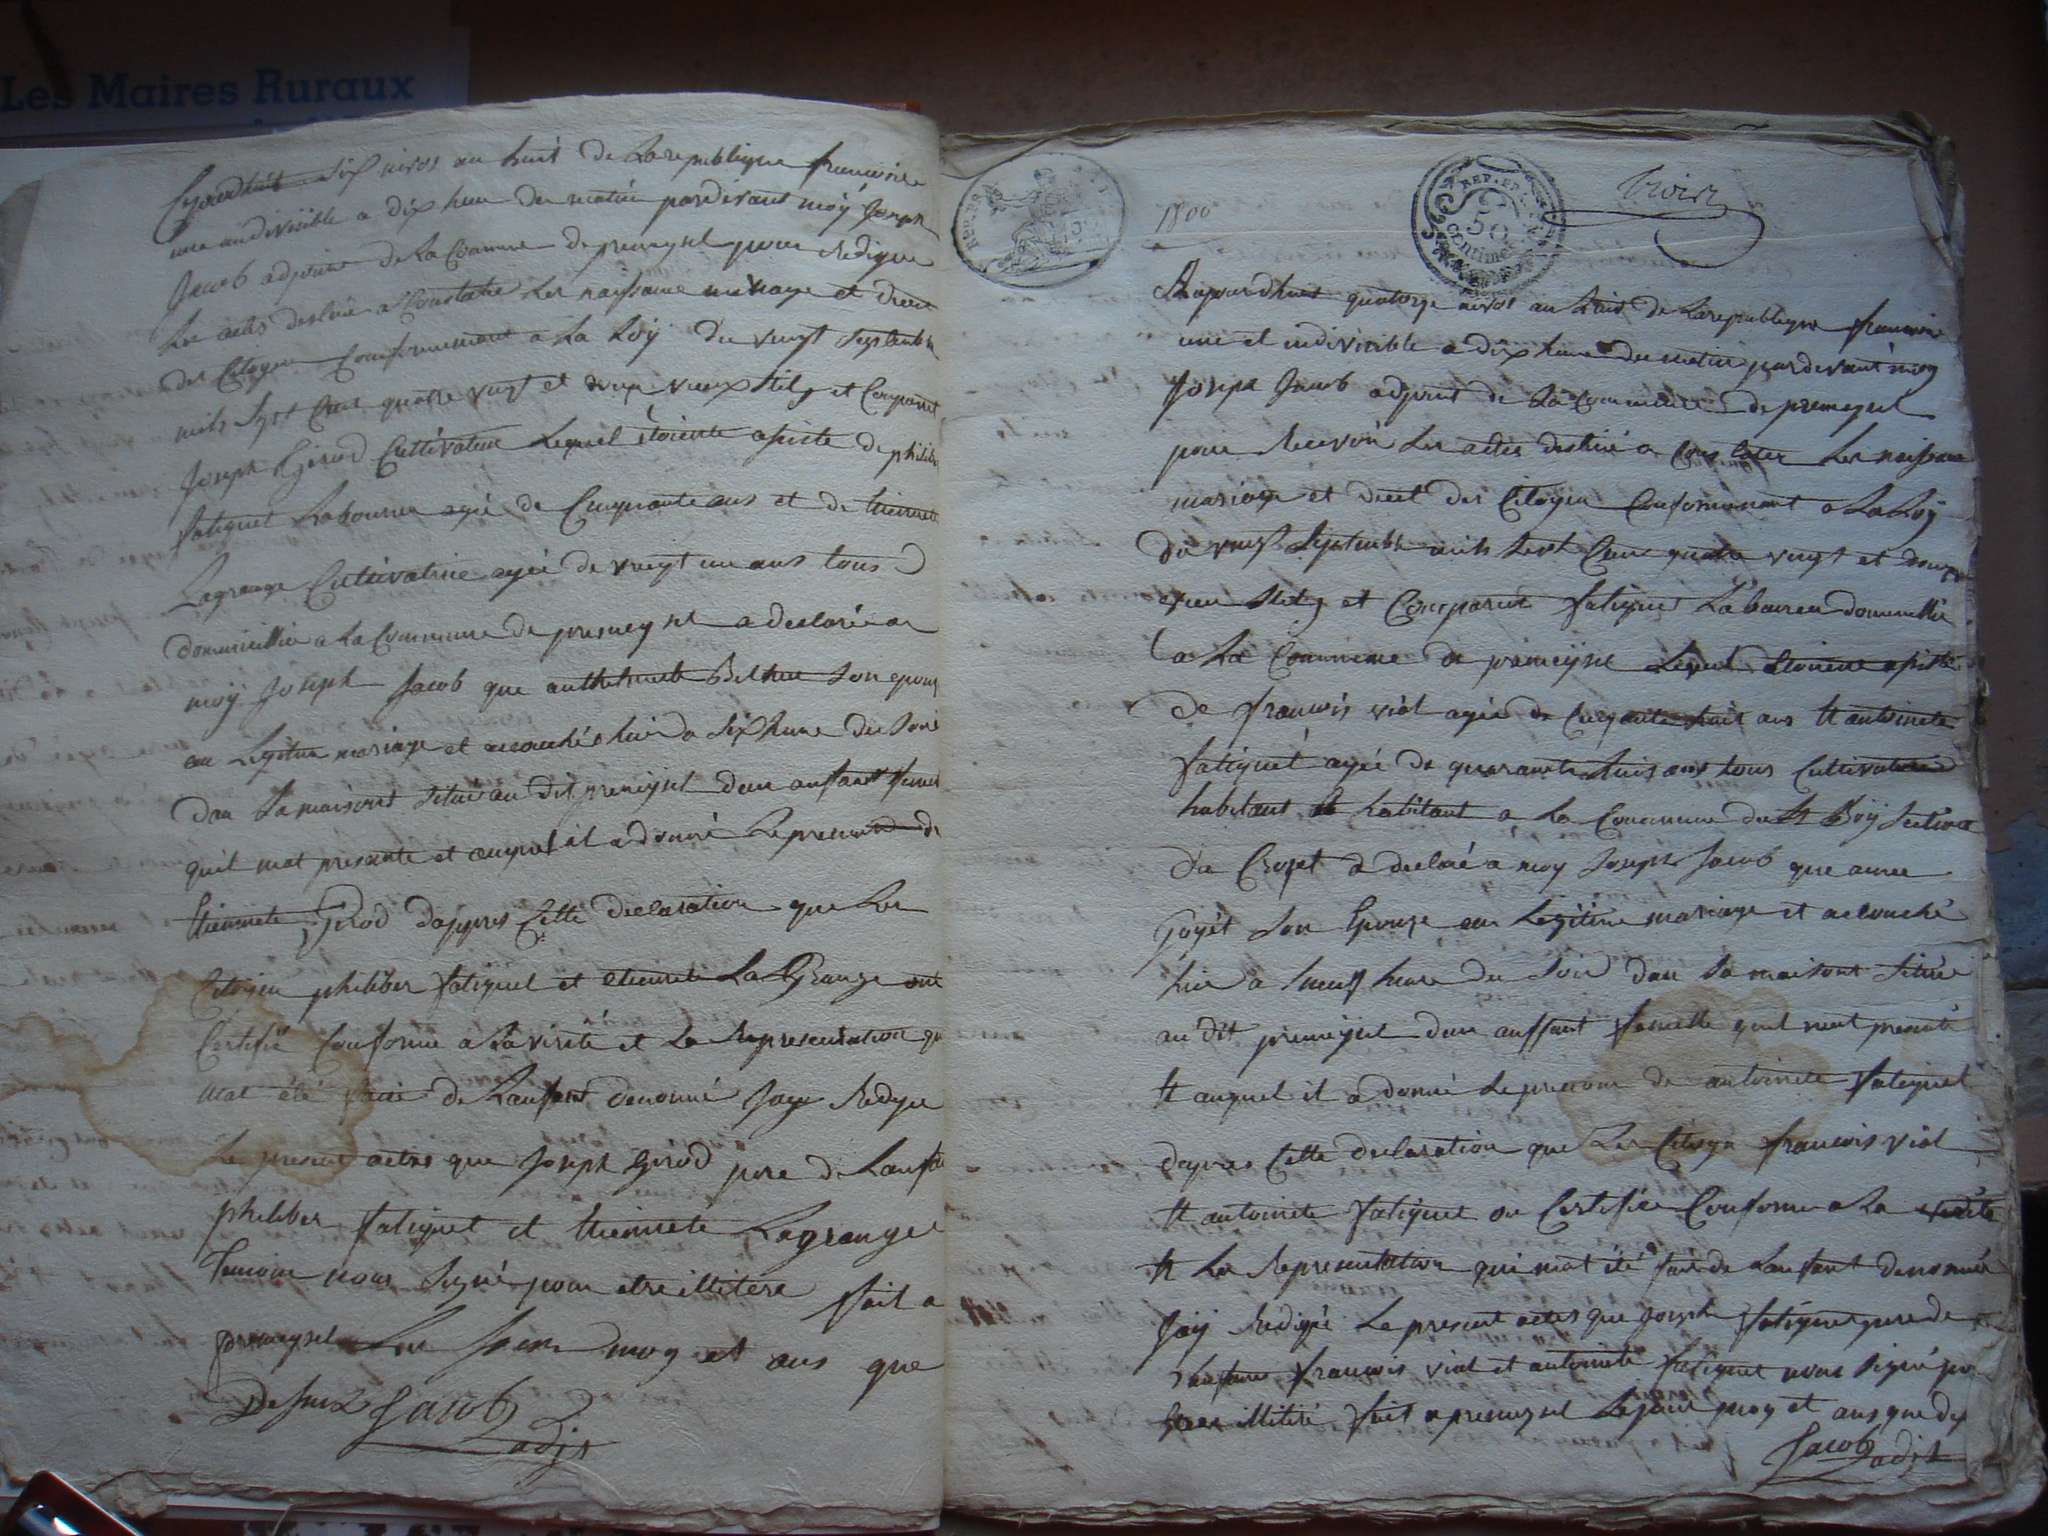 Les Maires Ruraux
six nivos an huit de La republique francoise
une andivisible a dix heure du matin pardevant moÿ Joseph
Jacob adjoint de La Commune de premeysel pour Rediger
Les actes destiné a Constater Les naissance mariage et deces
des Citoyen Conformement a La Loÿ du vingt septembre
mils sept Cent quatre vingt et douze vieux stile et Comparut
Joseph Girod Cultivateur Lequel etoiente assiste de philiber
fatiguet Laboureur agé de Cinquante ans et de Etiennete
Lagrange Cultivatrice agée de vingt un ans tous
domiciellie a La Commune de premeysel a declaré a
moÿ Joseph Jacob que son epous
en Legitime mariage et acouché hier a six heure du soir
dan La maisont situé au dit premeysel dun anfant femel
quil mat presenté et auquel il a donné Le prenom de
Etiennete Girod dappres Cette declaration que Les
Citoyen philiber fatiguet et etiennete La Grange ont
Certifié Conforme a La vérité et La Representation qui
mat été faite de Lanfant denomé Jay Redigé
Le present actes que Joseph Girod pere de Lanfan
philiber fatiguet et Etiennete Lagrange
temoin nont signé pour etre illitere fait a
premeysel Les Jour moy et ans que
Desus Jacob
adjt
REP. FR.
50
centimes
1800
trois
Aujourdhuit quatorze nivos an huit de La republique francoise
une et indivisible a dix heure du matin pardevant moy
Joseph Jacob adjoint de La Commune de premeysel
pour Recevoir Les actes destiné a Constater Les naissance
mariage et deces des Citoyen Conformement a La Loÿ
du vingt septembre mils sept Cent quatre vingt et douze
vieu stile et Comparut fatiguet Laboureu domicillié
a La Commune de premeysel Lequel etoiente assisté
de francois viol agée de Cinquante huit ans Et antoinete
fatiguet agée de quarante huis ans tous Cultivateur
habitant a La Commune du section
du Crozet a declaré a moy Joseph Jacob que
Goyét son Epouze en Legitime mariage et acouché
hier a neuf heure du soir dan sa maisont situé
au dit premeysel dun anffant femelle quil mat presenté
Et auquel il a donné Le prenom de antoinete fatiguet
dapres Cette declaration que Les Citoyn francois viol
Et antoinete fatiguet on Certifié Conforme a La verité
Et La Representation qui mat été fait de Lanfant denomé
Jay Redigé Le present actes que Joseph fatiguet pere de
Lanfant francois viol et antoinete fatiguet nont signé po
illitéré fait a premeysel Le jour moy et ans que de
Jacob adjt